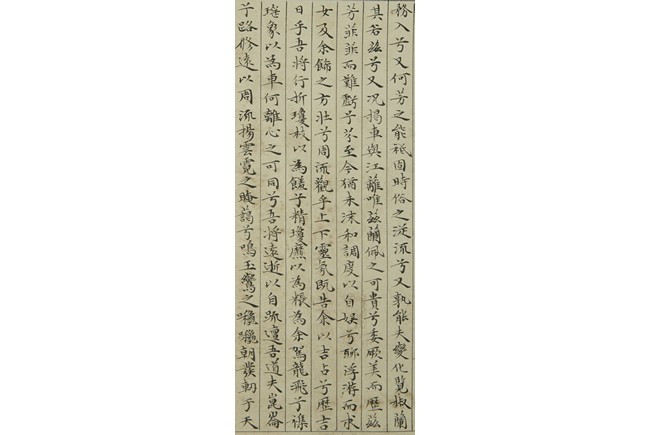 務入兮又何芳之能祗固時俗之從流兮又孰能夫變化覽椒蘭
其若茲兮又況揭車與江離唯茲蘭佩之可貴兮委厥美而歷茲
芳菲菲而難虧兮芬至今猶未沬和調度以自娛兮聊浮游而求
女及余飾之方壯兮周流觀乎上下靈氛既告余以吉占兮歷吉
日乎吾將行折瓊枝以為饈兮精瓊爢以為粻為余駕飛龍兮雜
瑤象以為車何離心之可同兮吾將遠逝以自疏邅吾道夫崑崙
兮路修遠以周流揚雲霓之晻藹兮鳴玉鸞之啾啾朝發軔于天